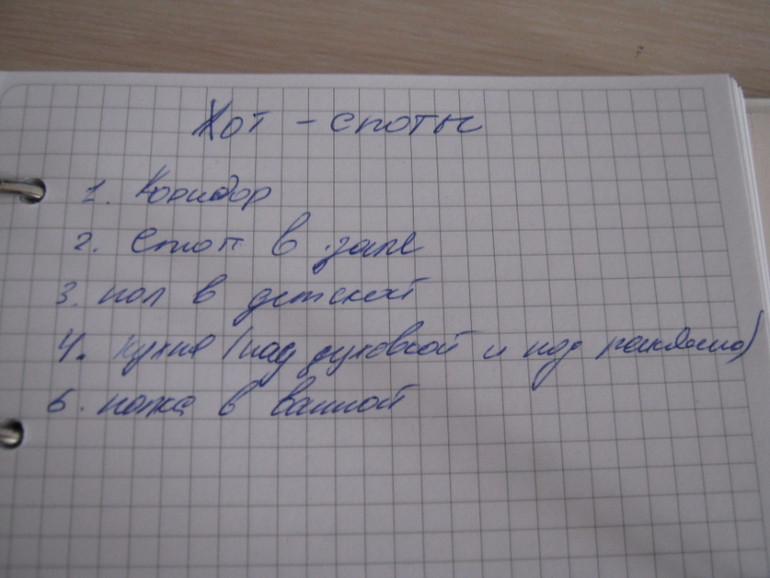 Хот - споты
1. Коридор
2. Стол в зале
3. пол в детской
4. Кухня (над духовкой и под раковиной)
5. полка в ванной